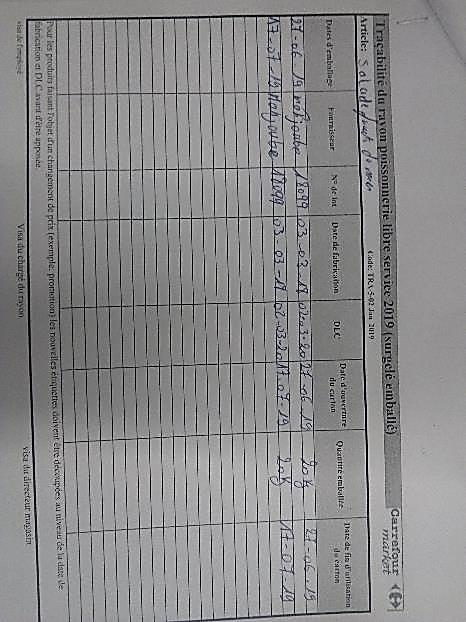 Carrefour
market
Traçabilité du rayon poissonnerie libre service 2019 (surgelé emballé)
Code: TRA-5-02 Jan 2019
Article: salade fruit de mer
Dates d'emballage Fournisseur N° de lot Date de fabrication DLC Date d'ouverture du carton Quantité emballée Date de fin d'utilisation du carton
27-06-19 18099 03-03-19 02-03-20 27-06-19 27-06-19
17-07-19 18099 03-03-19 02-03-20 17-07-19 17-07-19
Pour les produits faisant l'objet d'un changement de prix (exemple: promotion) les nouvelles étiquettes doivent être découpées au niveau de la date de
fabrication et DLC avant d'être apposée.
visa de l'employé Visa du chargé du rayon visa du directeur magasin